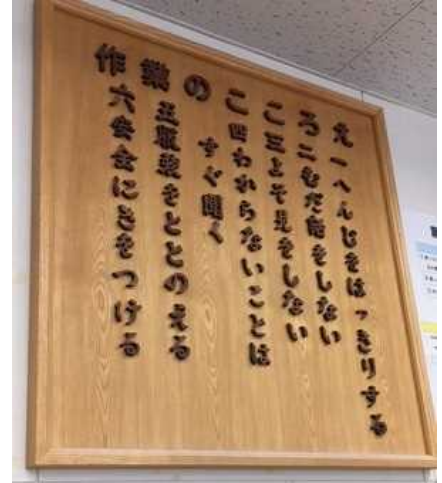 作業のこころえ
一へんじをはっきりする
二むだ話をしない
三よそ見をしない
四わからないことは
すぐ聞く
五服装をととのえる
六安全にきをつける